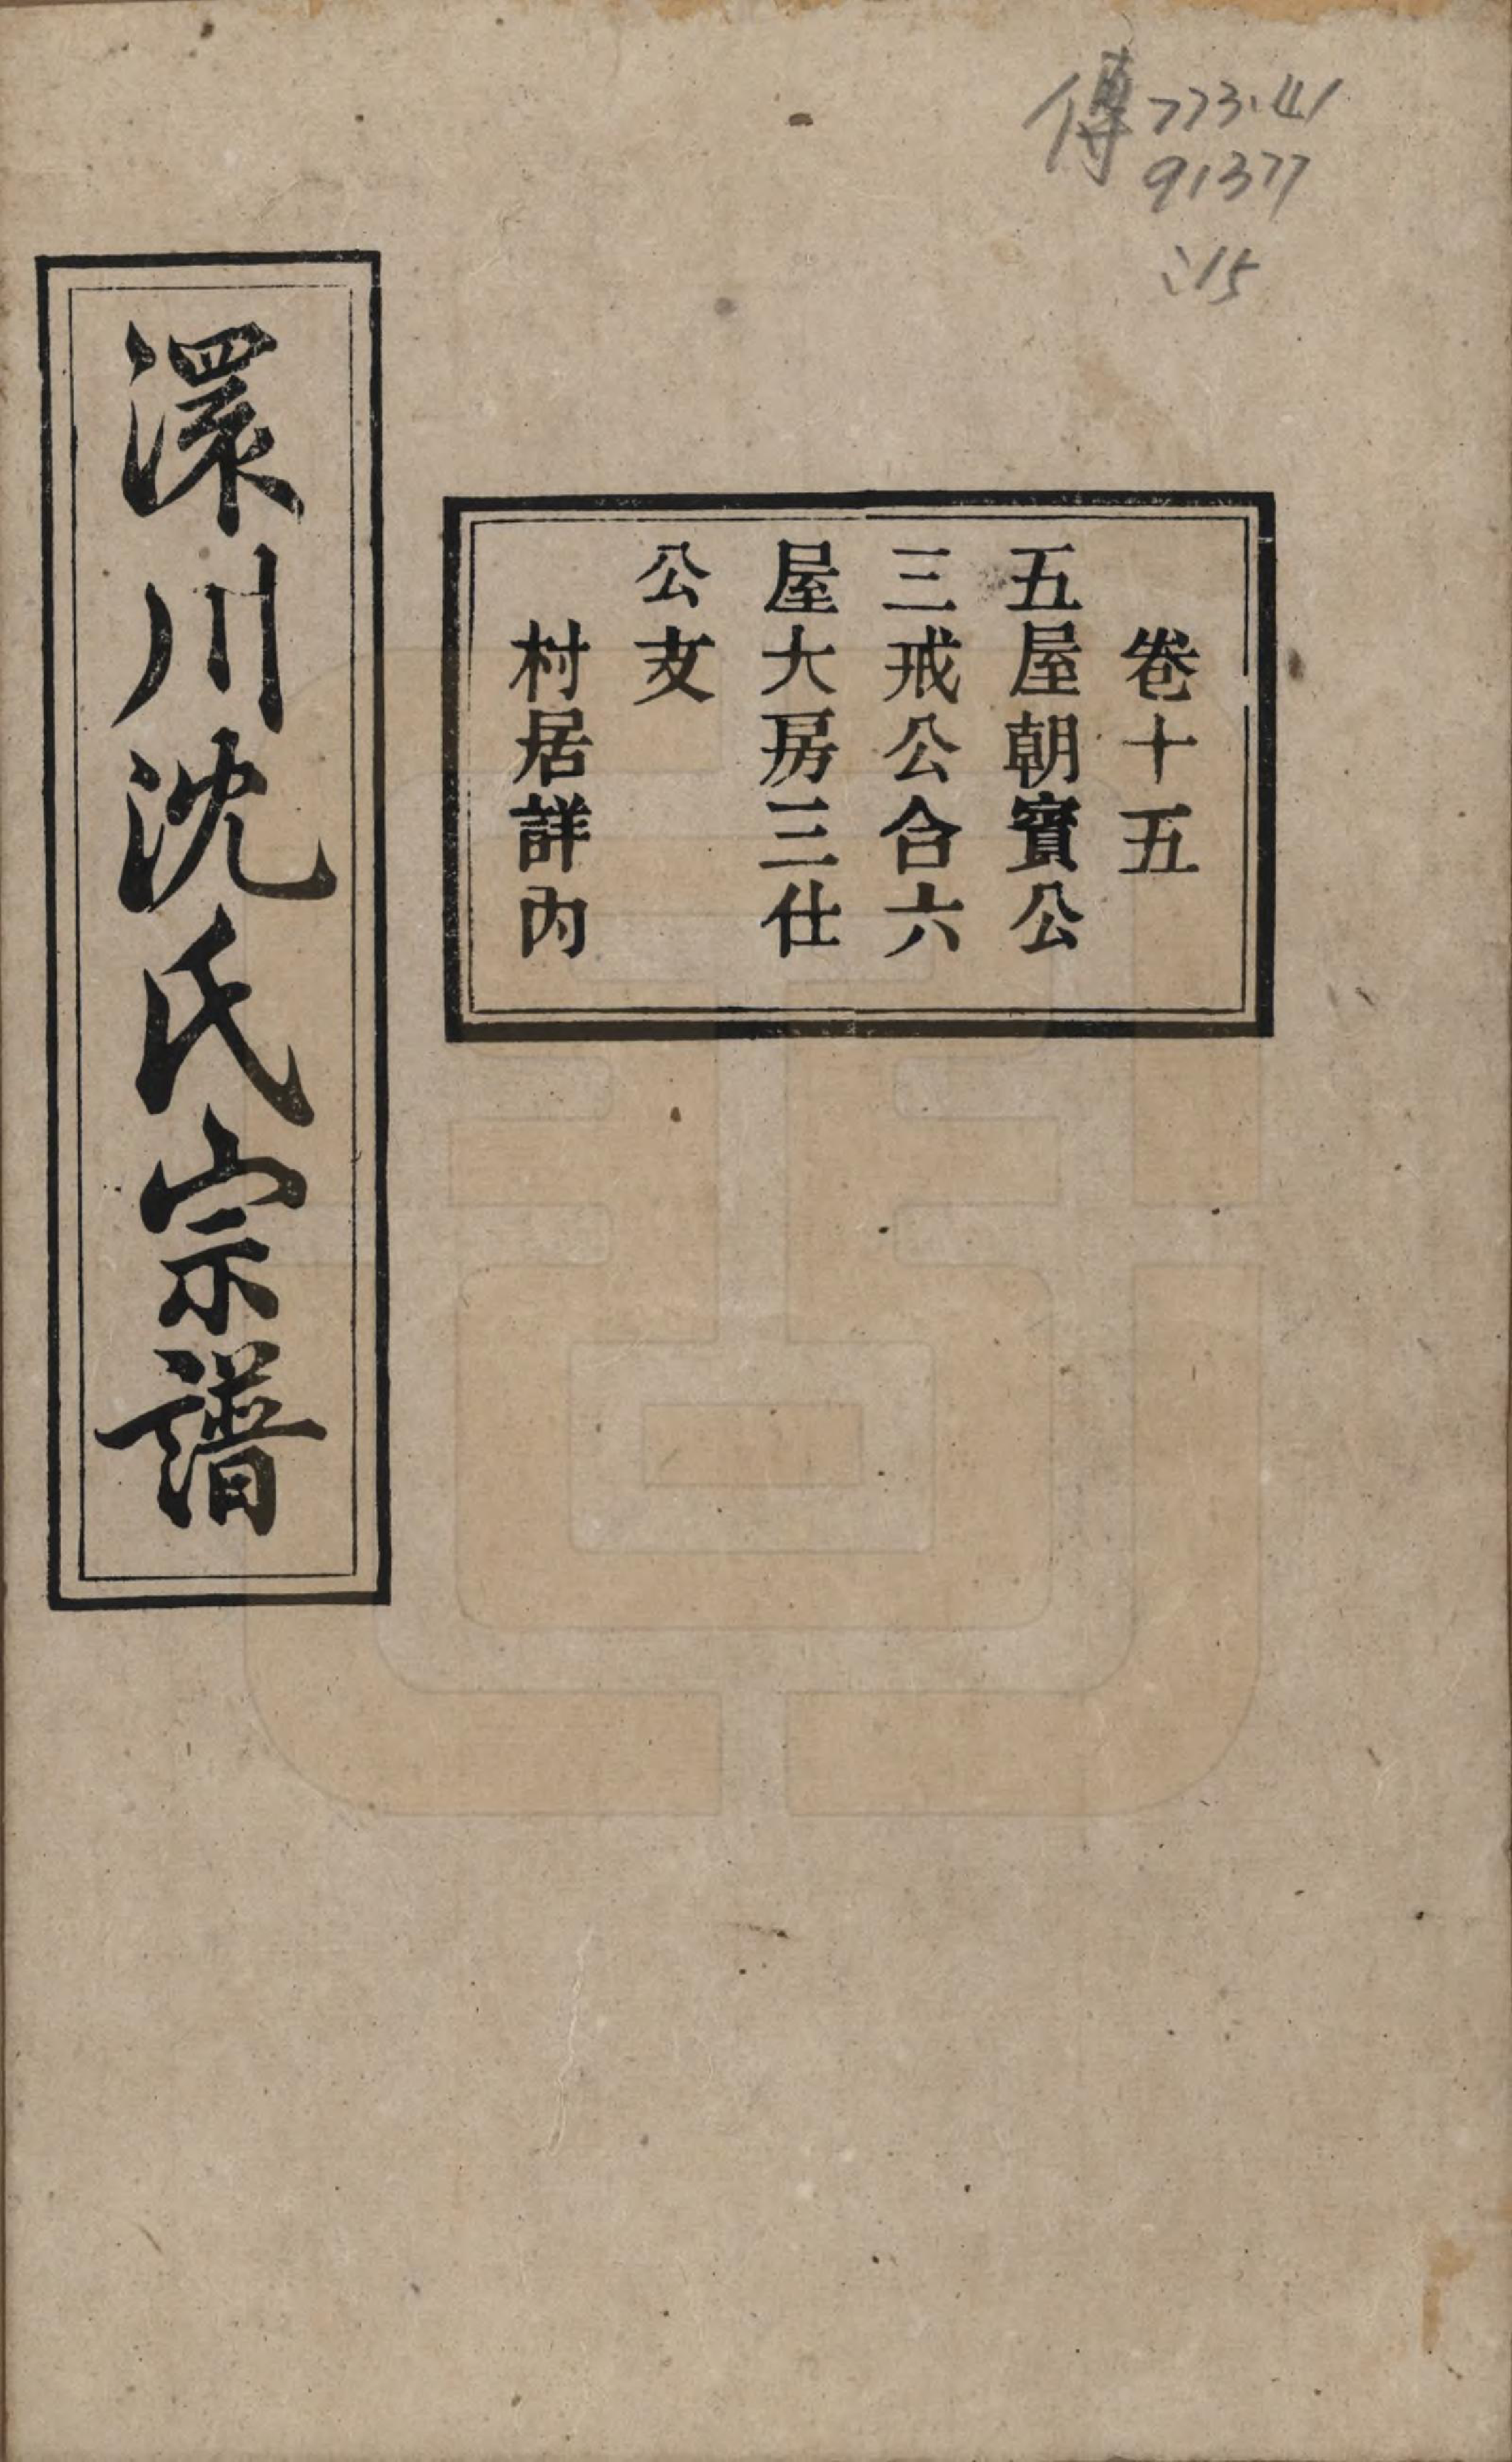 傳 773.41
91377
:15
卷十五
五屋朝寶公
三戒公合六
屋大房三仕
公支
村居詳內
澴川沈氏宗譜